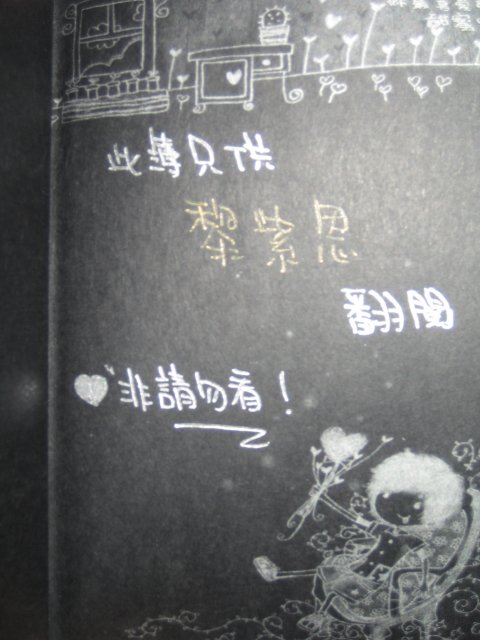 此薄只供
黎紫思
翻閱
非請勿看！